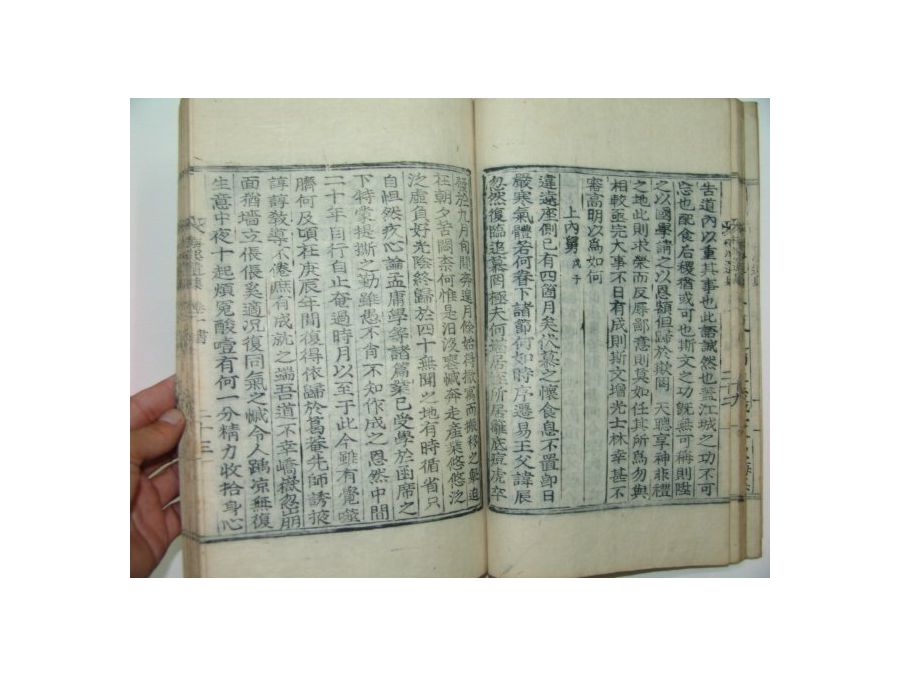 告道內以重其事也此語誠然也蓋江城之功不可
忘也配食后稷猶或可也斯文之功旣無可稱則陞
之以國學請之以恩額但歸於欺罔 天聽享神非禮
之地此則求榮而反辱鄙意則莫如任其所爲勿與
相較亟完大事不日有成則斯文增光士林幸甚不
審高明以爲如何
上內舅 戊子
違遠座側已有四箇月矣伏慕之懷食息不置卽日
嚴寒氣體若何眷下諸節何如時序遷易王父諱辰
忽然復臨追慕罔極夫何堪居姪所居離底痘虎卒
發於九月旬間奔遑月餘始得撤寓而搬移之擧迫
在朝夕苦悶柰何惟是汨沒喪慽奔走產業悠悠泛
泛虛負好光陰終歸於四十無聞之地有時循省只
自怛然疚心論孟庸學等諸篇業已受學於函席之
下特蒙提撕之勤雖愚不肖不知作成之恩然中間
二十年自行自止奄過時月以至于此今雖有覺噬
臍何及頃在庚辰年間復得依歸於篤菴先師誘掖
諄諄敎導不倦庶有成就之端吾道不幸嶠嶽忽崩
面猶墻立倀倀奚適況復同氣之慽令人踽凉無復
生意中夜十起煩寃酸噎有何一分精力收拾身心
卷一 書
二十三